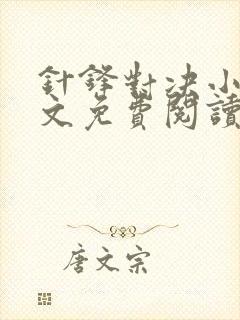 針鋒對决小
文免費閱讀
唐文宗